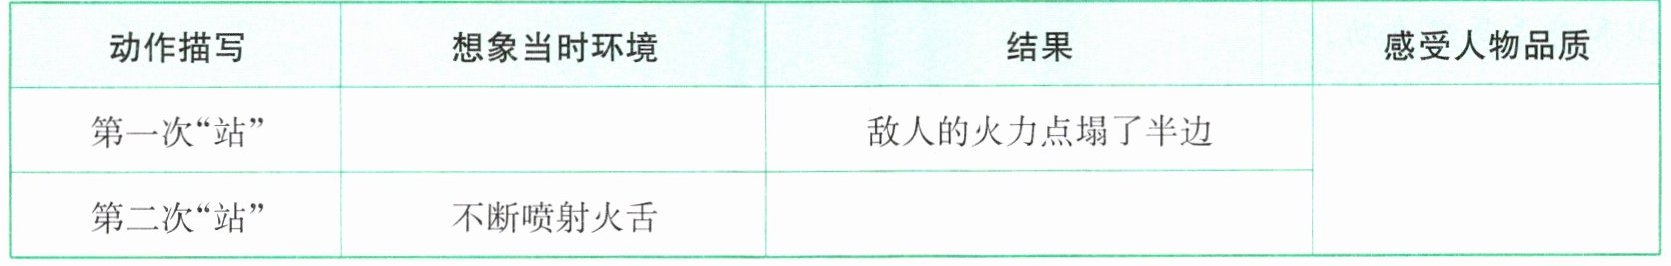 动作描写 想象当时环境 结果 感受人物品质
第一次“站” 敌人的火力点塌了半边
第二次“站” 不断喷射火舌